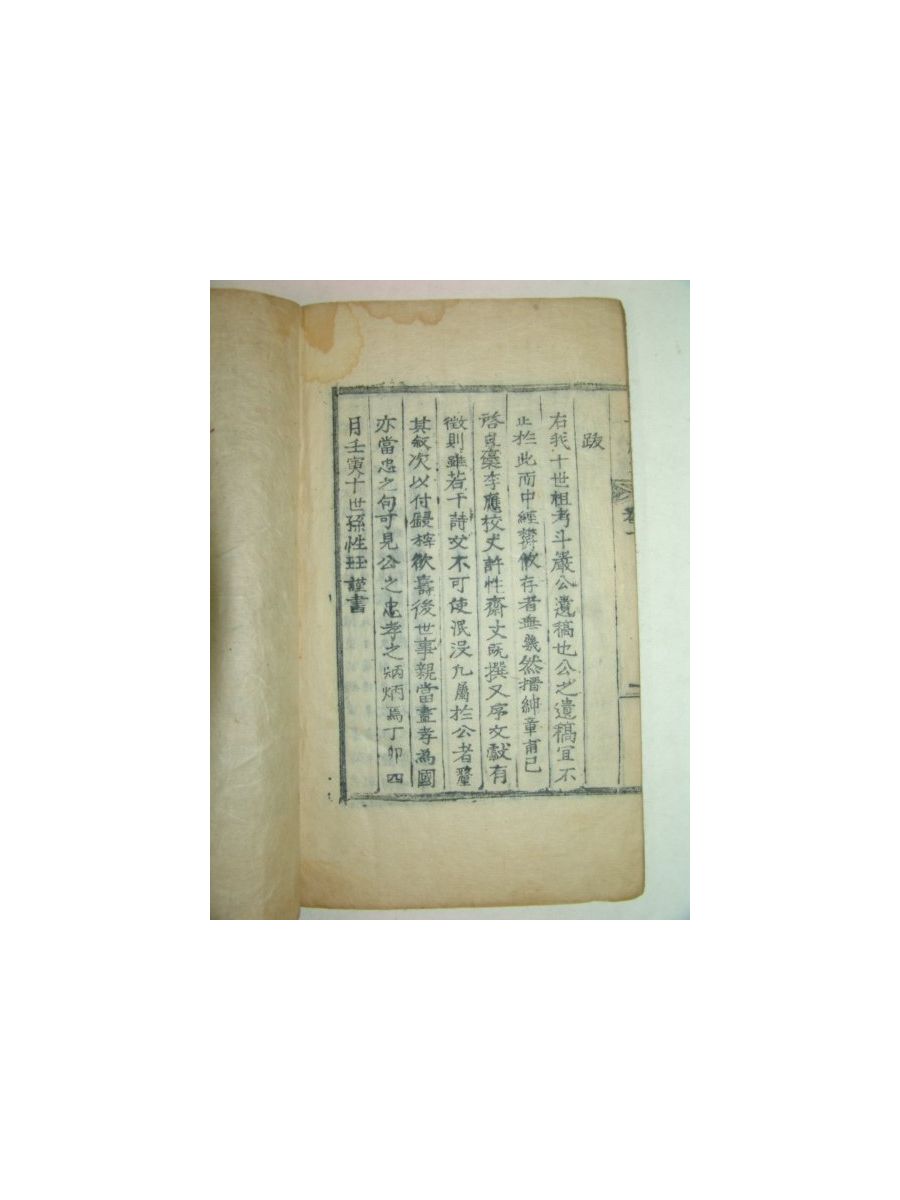 跋
右我十世祖考斗巖公遺稿也公之遺稿宜不
止於此而中經欝攸存者無幾然搢紳章甫已
啓草李應校丈許性齋丈旣撰又序文獻有
徵則雖若干詩文不可使泯沒凡屬於公者釐
其敘次以付鋟梓欲壽後世事親當盡孝為國
亦當忠之句可見公之忠孝之炳炳焉丁卯四
月壬寅十世孫性珏謹書
卷一